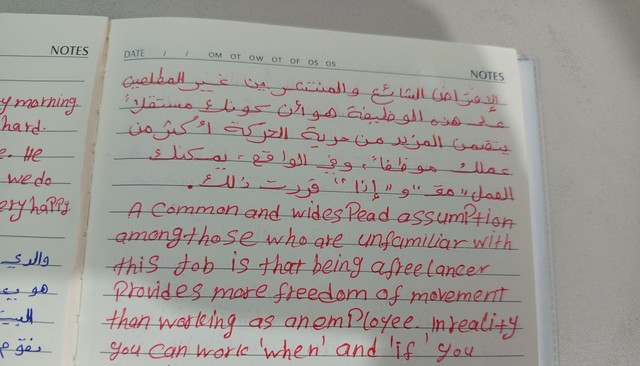 NOTES
y morning
hard.
e. He
we do
ery happy
والدي
هو يع
البيت
DATE / / OM OT OW OT OF OS OS
NOTES
الافتراض الشائع والمنتشر بين غير المطلعين
على هذه الوظيفة هو أن كونك مستقلاً
يتضمن المزيد من حرية الحركة أكثر من
عملك موظفاً، وفي الواقع، يمكنك
العمل "متى" و "إذا" قررت ذلك.
A common and widespead assumption
among those who are unfamiliar with
this Job is that being a freelancer
Provides more freedom of movement
than working as an emPloyee. In reality
you can work 'when' and 'if' you